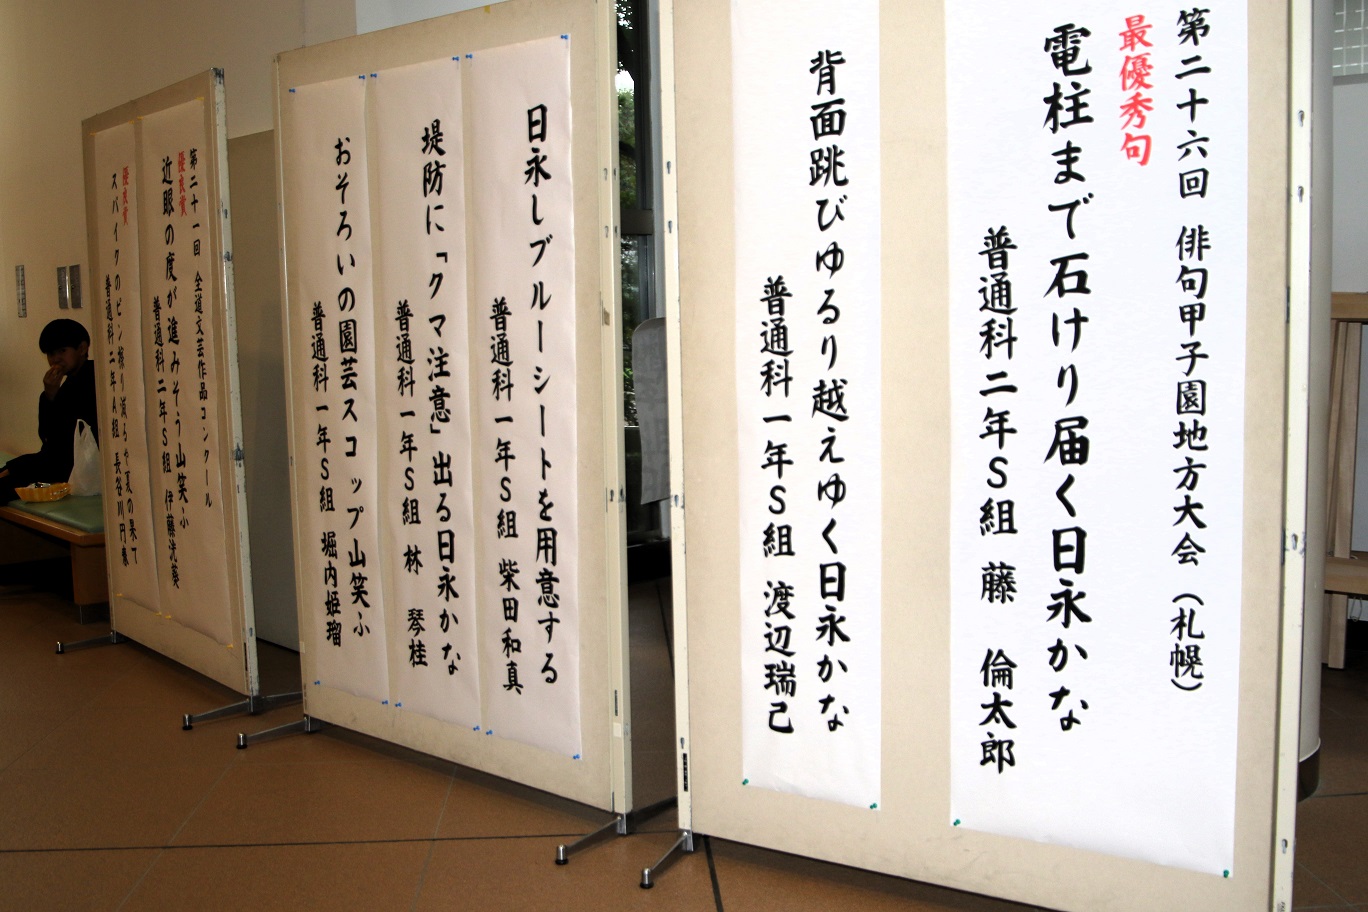 第二十六回 俳句甲子園地方大会（札幌）
最優秀句
電柱まで石けり届く日永かな
普通科二年S組 藤 倫太郎
背面跳びゆるり越えゆく日永かな
普通科一年S組 渡辺瑞己
日永しブルーシートを用意する
普通科一年S組 柴田和真
堤防に「クマ注意」出る日永かな
普通科一年S組 林 琴桂
おそろいの園芸スコップ山笑ふ
普通科一年S組 堀内姫瑠
第二十一回 全道文芸作品コンクール
優良賞
近眼の度が進みそう山笑ふ
普通科二年S組 伊藤洸葵
優良賞
スパイクのピン擦り減らや夏の果て
普通科二年A組 長谷川円